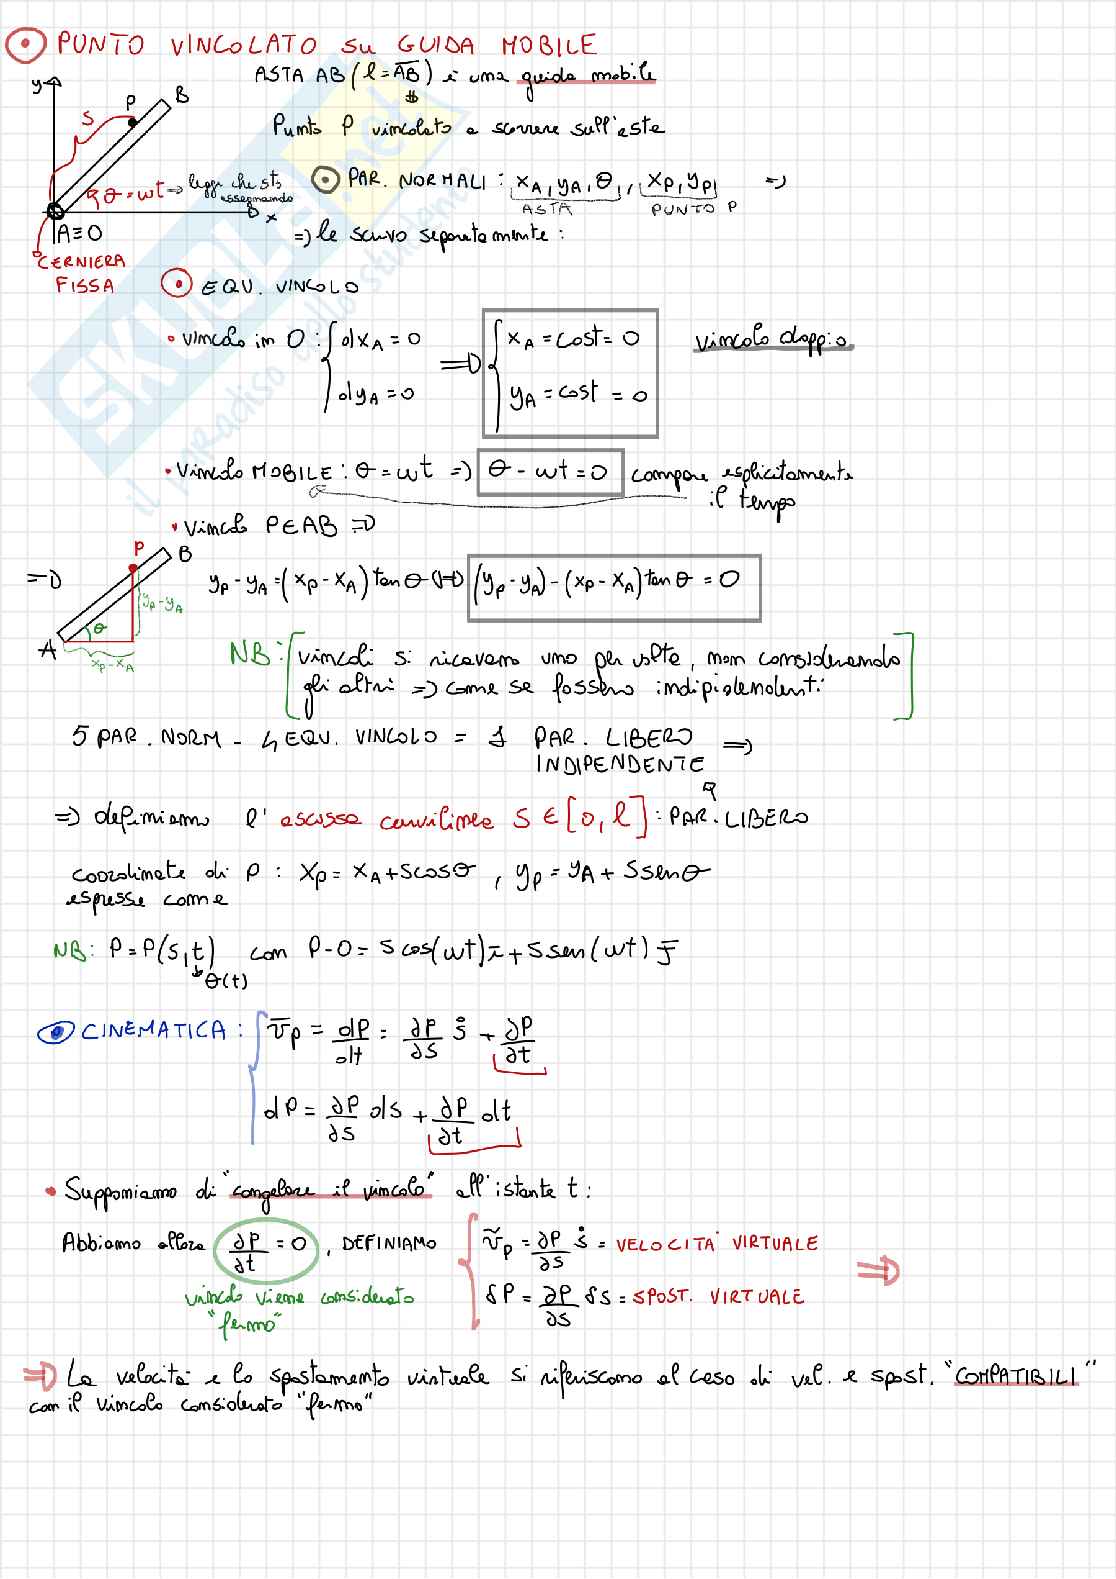 PUNTO VINCOLATO SU GUIDA MOBILE
ASTA AB (l = AB) è una guida mobile
Punto P vincolato a scorrere sull'asta
y
S
P
B
θ = ωt => leggi che sto assegnando
x
A ≡ O
CERNIERA FISSA
PAR. NORMALI : xA, yA, θ, xP, yP =>
ASTA PUNTO P
=> le scrivo separatamente :
EQU. VINCOLO
• vincolo in O : { dxA = 0 => { xA = cost = 0 vincolo doppio
dyA = 0 yA = cost = 0
• Vincolo MOBILE : θ = ωt => θ - ωt = 0 compare esplicitamente
il tempo
• Vincolo P∈AB =>
P
B
=> yP - yA = (xP - xA) tan θ <=> (yP - yA) - (xP - xA) tan θ = 0
yP - yA
θ
A
xP - xA
NB: [vincoli si ricavano uno per volta, non considerando
gli altri => come se fossero indipendenti]
5 PAR. NORM - 4 EQU. VINCOLO = 1 PAR. LIBERO =>
INDIPENDENTE
=> definiamo l'ascissa curvilinea S ∈ [0, l] : PAR. LIBERO
coordinate di P : xP = xA + S cos θ , yP = yA + S sen θ
espresse come
NB: P = P(S, t) con P - O = S cos(ωt) i + S sen(ωt) j
θ(t)
CINEMATICA : { vP = dP/dt = ∂P/∂S Ṡ + ∂P/∂t
dP = ∂P/∂S dS + ∂P/∂t dt
• Supponiamo di "congelare il vincolo" all'istante t :
Abbiamo allora ∂P/∂t = 0 , DEFINIAMO { ṽP = ∂P/∂S Ṡ = VELOCITA' VIRTUALE =>
vincolo viene considerato "fermo"
δP = ∂P/∂S δS = SPOST. VIRTUALE
=> La velocità e lo spostamento virtuale si riferiscono al caso di vel. e spost. "COMPATIBILI"
con il vincolo considerato "fermo"
SKUOLA.net
il paradiso dello studente